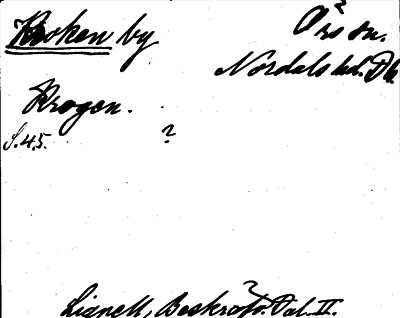 Kroken by
Ärs sn.
Nordals hd. Db
Krogen.
S. 45.
?
Lignell, Beskr. ö. Dal. II.